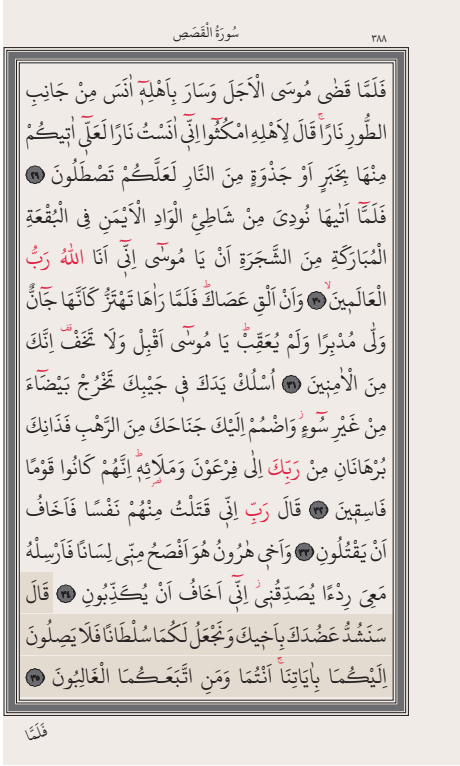 سُورَةُ الْقَصَصِ
٣٨٨
فَلَمَّا قَضٰى مُوسَى الْاَجَلَ وَسَارَ بِاَهْلِهٖٓ اٰنَسَ مِنْ جَانِبِ
الطُّورِ نَارًاۚ قَالَ لِاَهْلِهِ امْكُثُٓوا اِنّٖٓي اٰنَسْتُ نَارًا لَعَلّٖٓي اٰتٖيكُمْ
مِنْهَا بِخَبَرٍ اَوْ جَذْوَةٍ مِنَ النَّارِ لَعَلَّكُمْ تَصْطَلُونَ ﴿٢٩﴾
فَلَمَّٓا اَتٰيهَا نُودِيَ مِنْ شَاطِئِ الْوَادِ الْاَيْمَنِ فِي الْبُقْعَةِ
الْمُبَارَكَةِ مِنَ الشَّجَرَةِ اَنْ يَا مُوسٰٓى اِنّٖٓي اَنَا اللّٰهُ رَبُّ
الْعَالَمٖينَۙ ﴿٣٠﴾ وَاَنْ اَلْقِ عَصَاكَۜ فَلَمَّا رَاٰهَا تَهْتَزُّ كَاَنَّهَا جَٓانٌّ
وَلّٰى مُدْبِرًا وَلَمْ يُعَقِّبْۜ يَا مُوسٰٓى اَقْبِلْ وَلَا تَخَفْ۠ اِنَّكَ
مِنَ الْاٰمِنٖينَ ﴿٣١﴾ اُسْلُكْ يَدَكَ فٖي جَيْبِكَ تَخْرُجْ بَيْضَٓاءَ
مِنْ غَيْرِ سُٓوءٍۘ وَاضْمُمْ اِلَيْكَ جَنَاحَكَ مِنَ الرَّهْبِ فَذَانِكَ
بُرْهَانَانِ مِنْ رَبِّكَ اِلٰى فِرْعَوْنَ وَمَلَا۬ئِهٖۜ اِنَّهُمْ كَانُوا قَوْمًا
فَاسِقٖينَ ﴿٣٢﴾ قَالَ رَبِّ اِنّٖي قَتَلْتُ مِنْهُمْ نَفْسًا فَاَخَافُ
اَنْ يَقْتُلُونِ ﴿٣٣﴾ وَاَخٖي هٰرُونُ هُوَ اَفْصَحُ مِنّٖي لِسَانًا فَاَرْسِلْهُ
مَعِيَ رِدْءًا يُصَدِّقُنٖيۘ اِنّٖٓي اَخَافُ اَنْ يُكَذِّبُونِ ﴿٣٤﴾ قَالَ
سَنَشُدُّ عَضُدَكَ بِاَخٖيكَ وَنَجْعَلُ لَكُمَا سُلْطَانًا فَلَا يَصِلُونَ
اِلَيْكُمَا بِاٰيَاتِنَاۚ اَنْتُمَا وَمَنِ اتَّبَعَكُمَا الْغَالِبُونَ ﴿٣٥﴾
فَلَمَّا